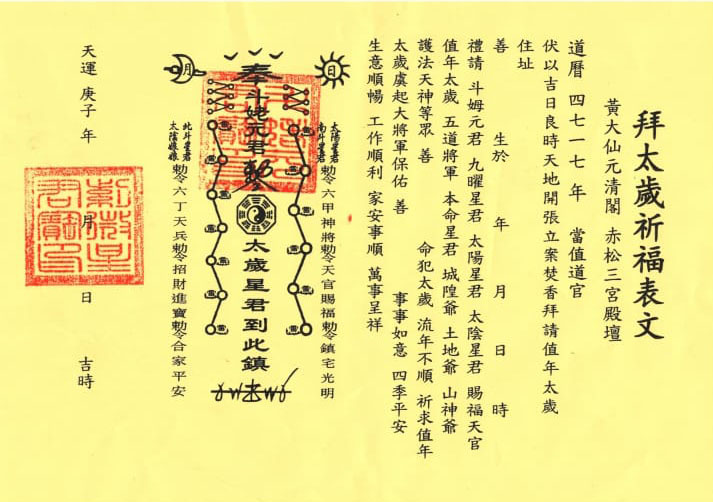 拜太歲祈福表文
黃大仙元清閣 赤松三宮殿壇
道曆 四七一七 年 當值道官
伏以吉日良時天地開張立案焚香拜請值年太歲
住址
善 生於 年 月 日 時
禮請 斗姆元君 九曜星君 太陽星君 太陰星君 賜福天官
值年太歲 五道將軍 本命星君 城隍爺 土地爺 山神爺
護法天神等眾 善 命犯太歲 流年不順 祈求值年
太歲虞起大將軍保佑 善 事事如意 四季平安
生意順暢 工作順利 家安事順 萬事呈祥
日
太陽星君
南斗星君
勅令六甲神將勅令天官賜福勅令鎮宅光明
奉斗姥元君勅令
太歲星君到此鎮
月
北斗星君
太陰娘娘
勅令六丁天兵勅令招財進寶勅令合家平安
天運 庚子 年 月 日 吉時